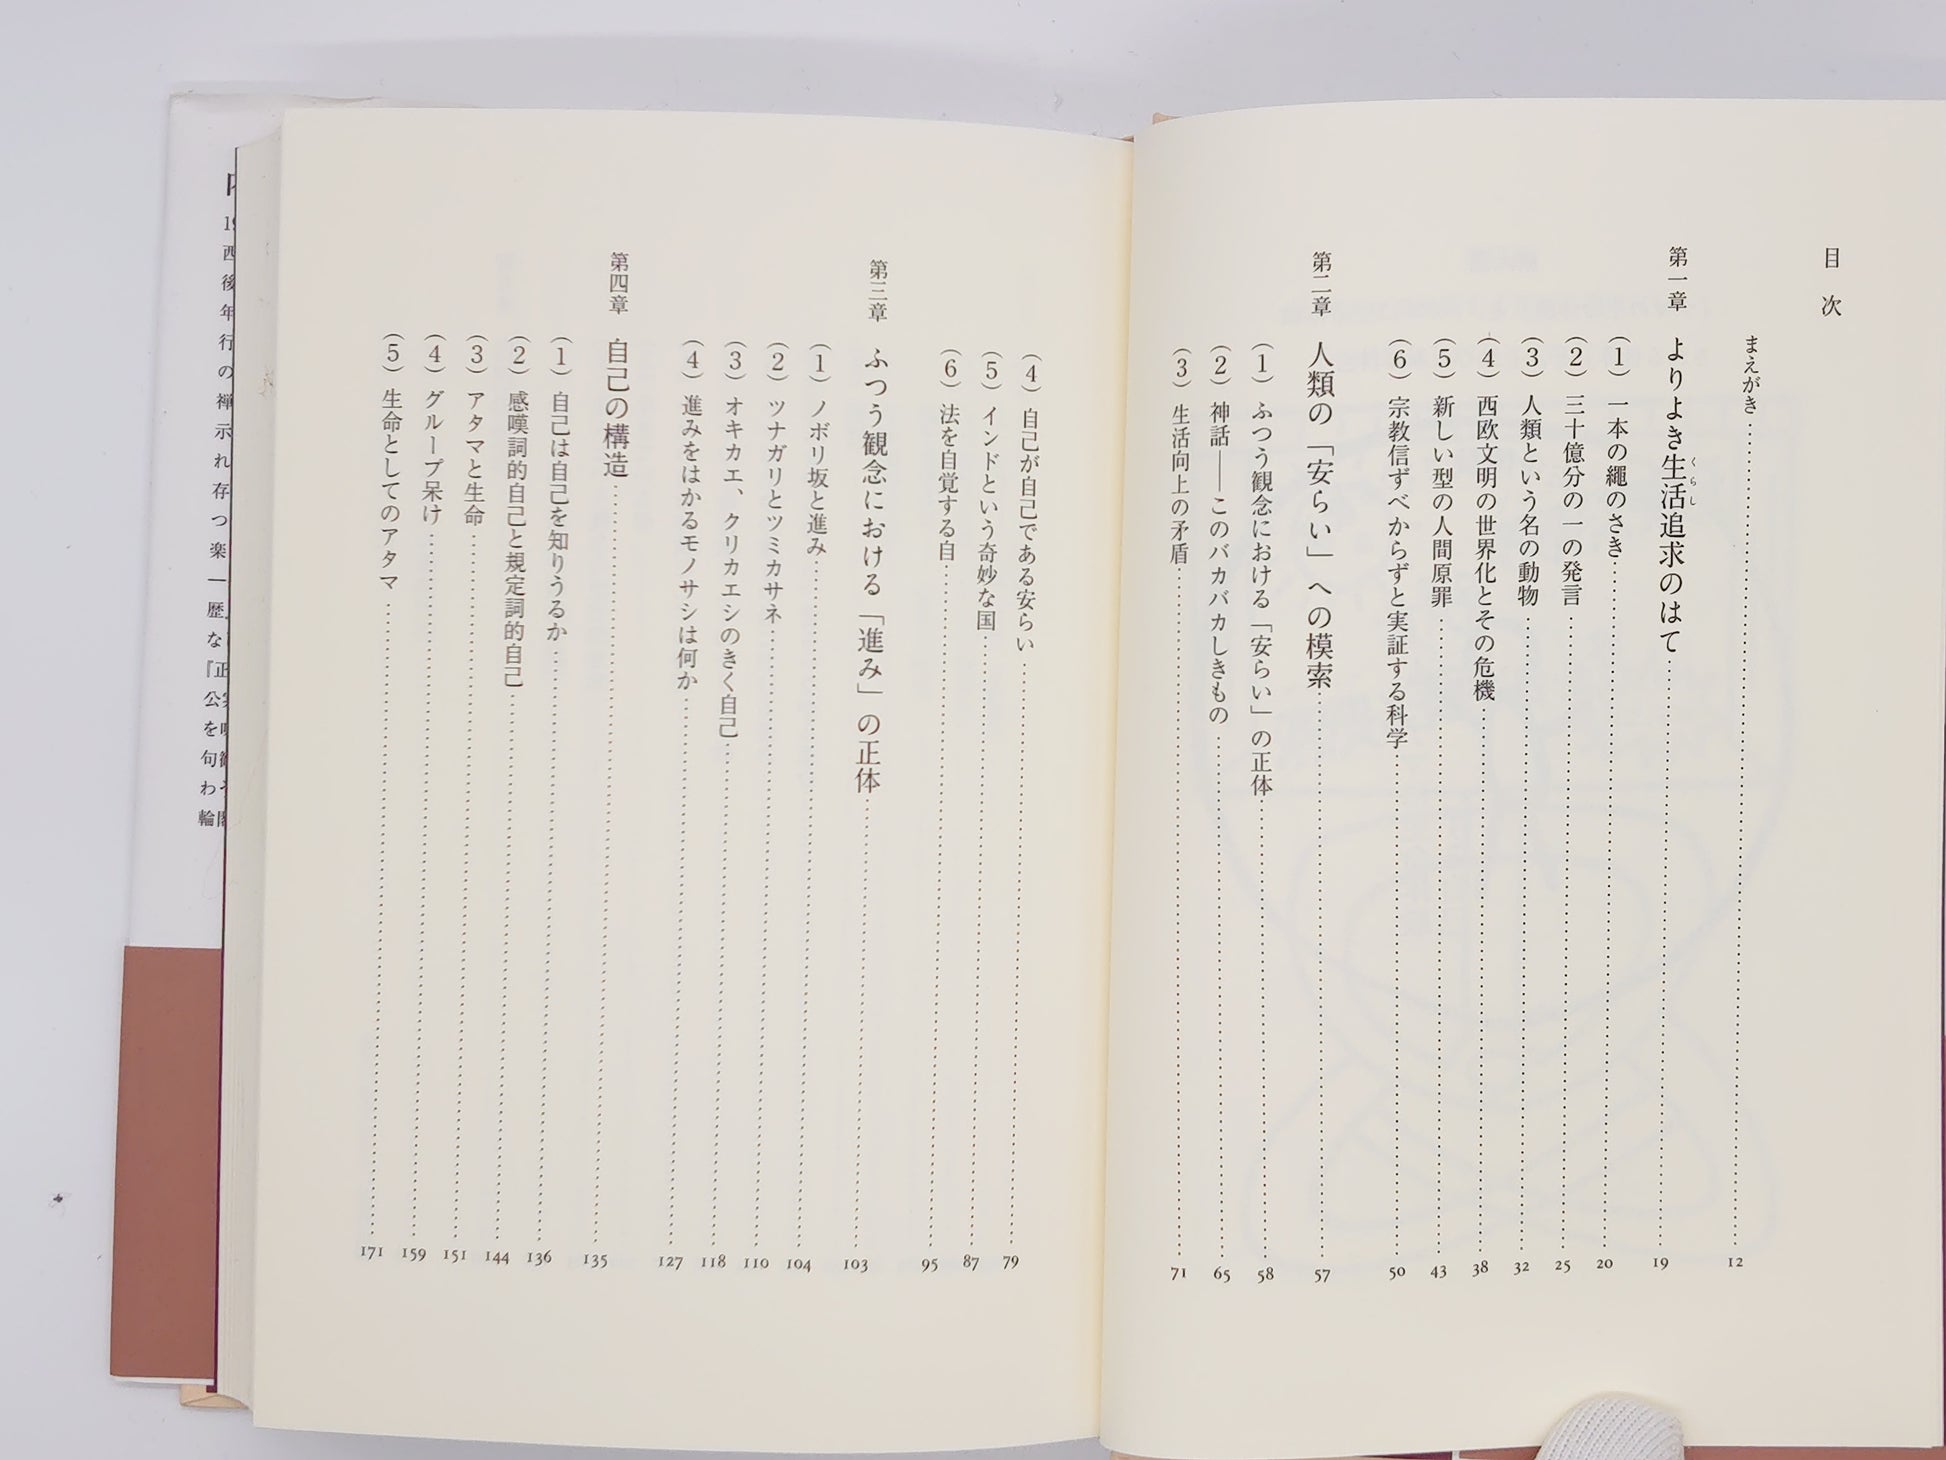 目次
まえがき……12
第一章 よりよき生活追求のはて……19
くらし
（1）一本の縄のさき……20
（2）三十億分の一の発言……25
（3）人類という名の動物……32
（4）西欧文明の世界化とその危機……38
（5）新しい型の人間原罪……43
（6）宗教信ずべからずと実証する科学……50
第二章 人類の「安らい」への模索……57
（1）ふつう観念における「安らい」の正体……58
（2）神話――このバカバカしきもの……65
（3）生活向上の矛盾……71
（4）自己が自己である安らい……79
（5）インドという奇妙な国……87
（6）法を自覚する自……95
第三章 ふつう観念における「進み」の正体……103
（1）ノボリ坂と進み……104
（2）ツナガリとツミカサネ……110
（3）オキカエ、クリカエシのきく自己……118
（4）進みをはかるモノサシは何か……127
第四章 自己の構造……135
（1）自己は自己を知りうるか……136
（2）感嘆詞的自己と規定詞的自己……144
（3）アタマと生命……151
（4）グループ呆け……159
（5）生命としてのアタマ……171